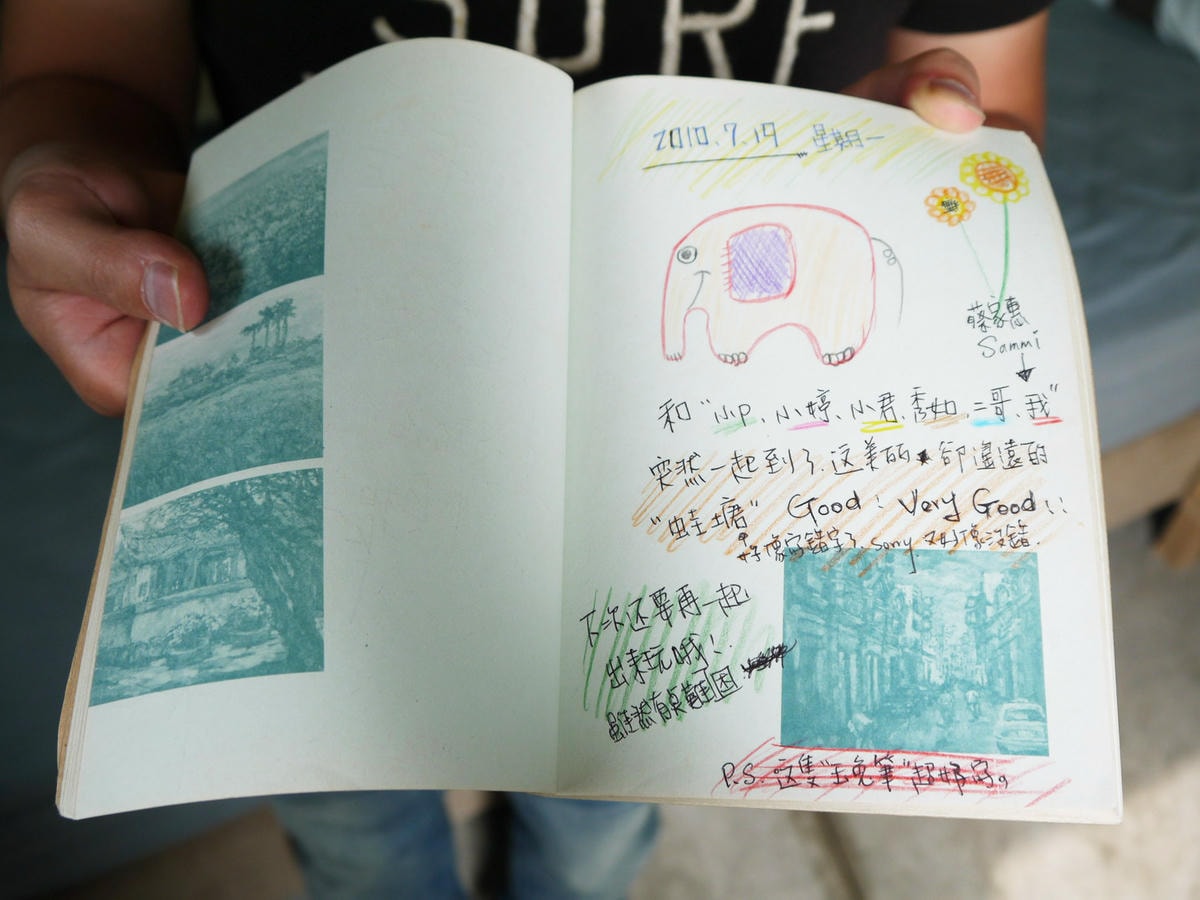 SURF
2010.7.19 星期一
蔡家惠
Sammi
和“小P、小婷、小君、秀如、二哥、我”
突然一起到了.这美丽卻遠的
“蛙塘” Good! Very Good!!
好像写錯字了 sorry. 又好像沒錯.
下次还要再一起
出來玩哦!!
雖然有点難困
P.S 这隻“玉兔筆”超好写。